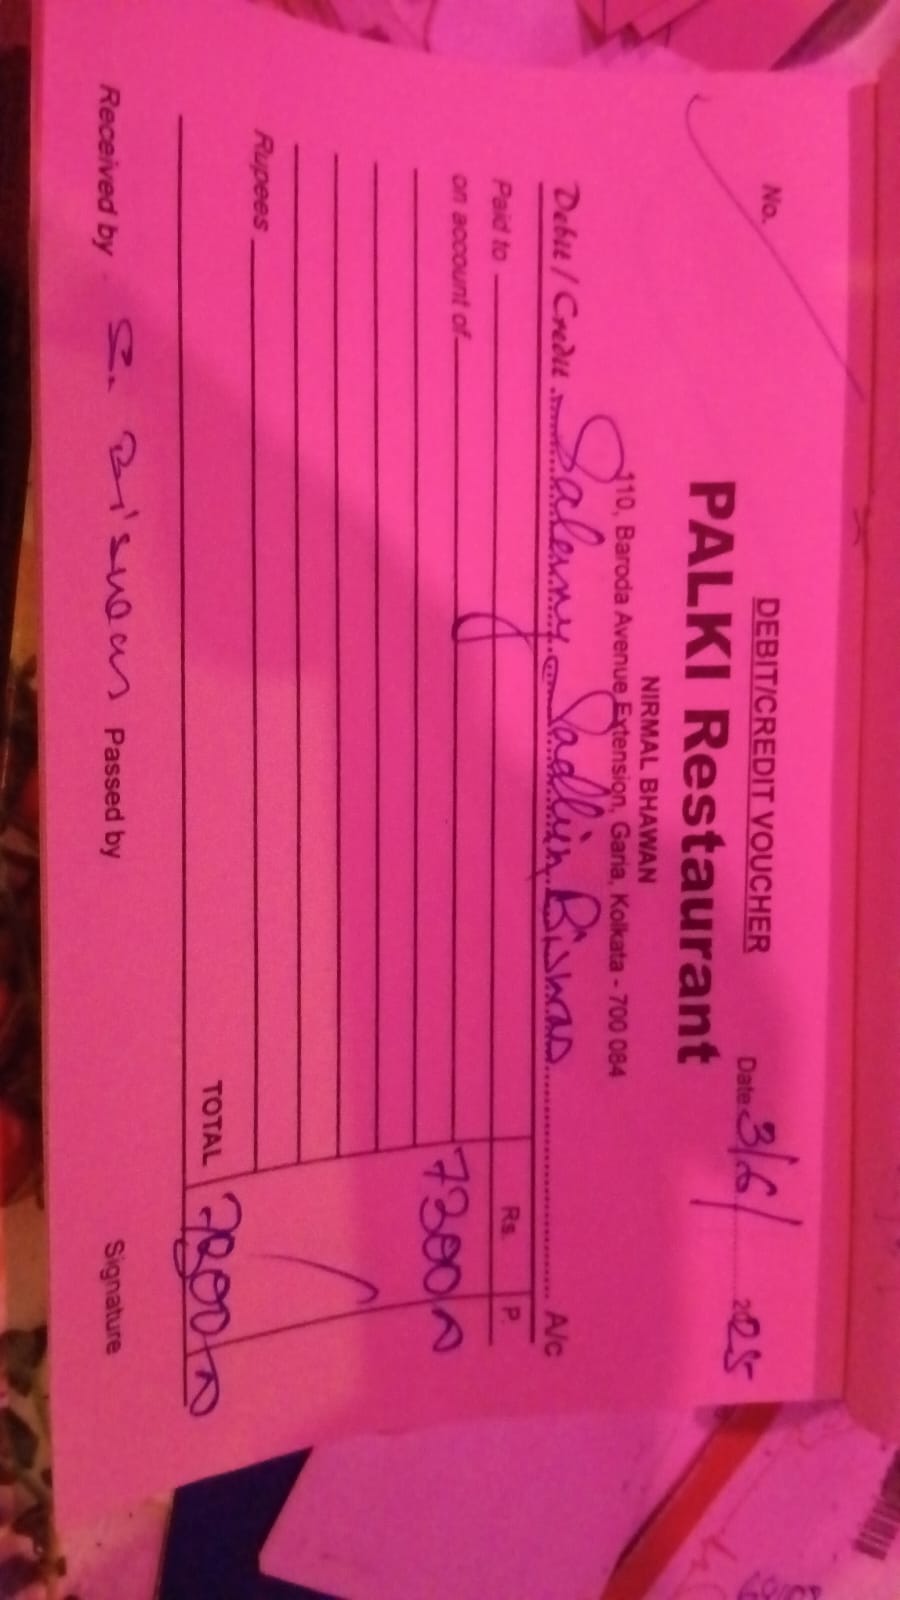 DEBIT/CREDIT VOUCHER
No. Date 3/6/ 2025
PALKI Restaurant
NIRMAL BHAWAN
110, Baroda Avenue Extension, Garia, Kolkata - 700 084
Debit / Credit Salary @ Sadhin Biswas A/c
Paid to Rs. P.
on account of 7300
Rupees
TOTAL 7300
Received by S. Biswas Passed by Signature